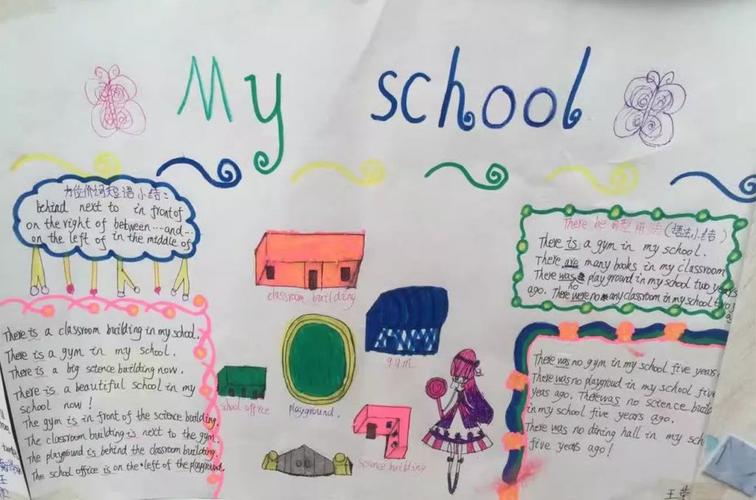 My school
方位介词短语小结:
behind next to in front of
on the right of between……and…
on the left of in the middle of
There is a classroom building in my school.
There is a gym in my school.
There is a big science building now.
There is a beautiful school in my
school now!
The gym is in front of the science building.
The classroom building is next to the gym.
The playground is behind the classroom building.
The school office is on the left of the playground.
classroom building
gym
school office
playground.
science building
There be 句型 (语法小结)
There is a gym in my school.
There are many books in my classroom
There was no playground in my school two years
ago. There were no many classroom in my school two
There was no gym in my school five years
There was no playgroud in my school five
years ago. There was no science
in my school five years ago.
There was no dining hall in my sch
five years ago!
王